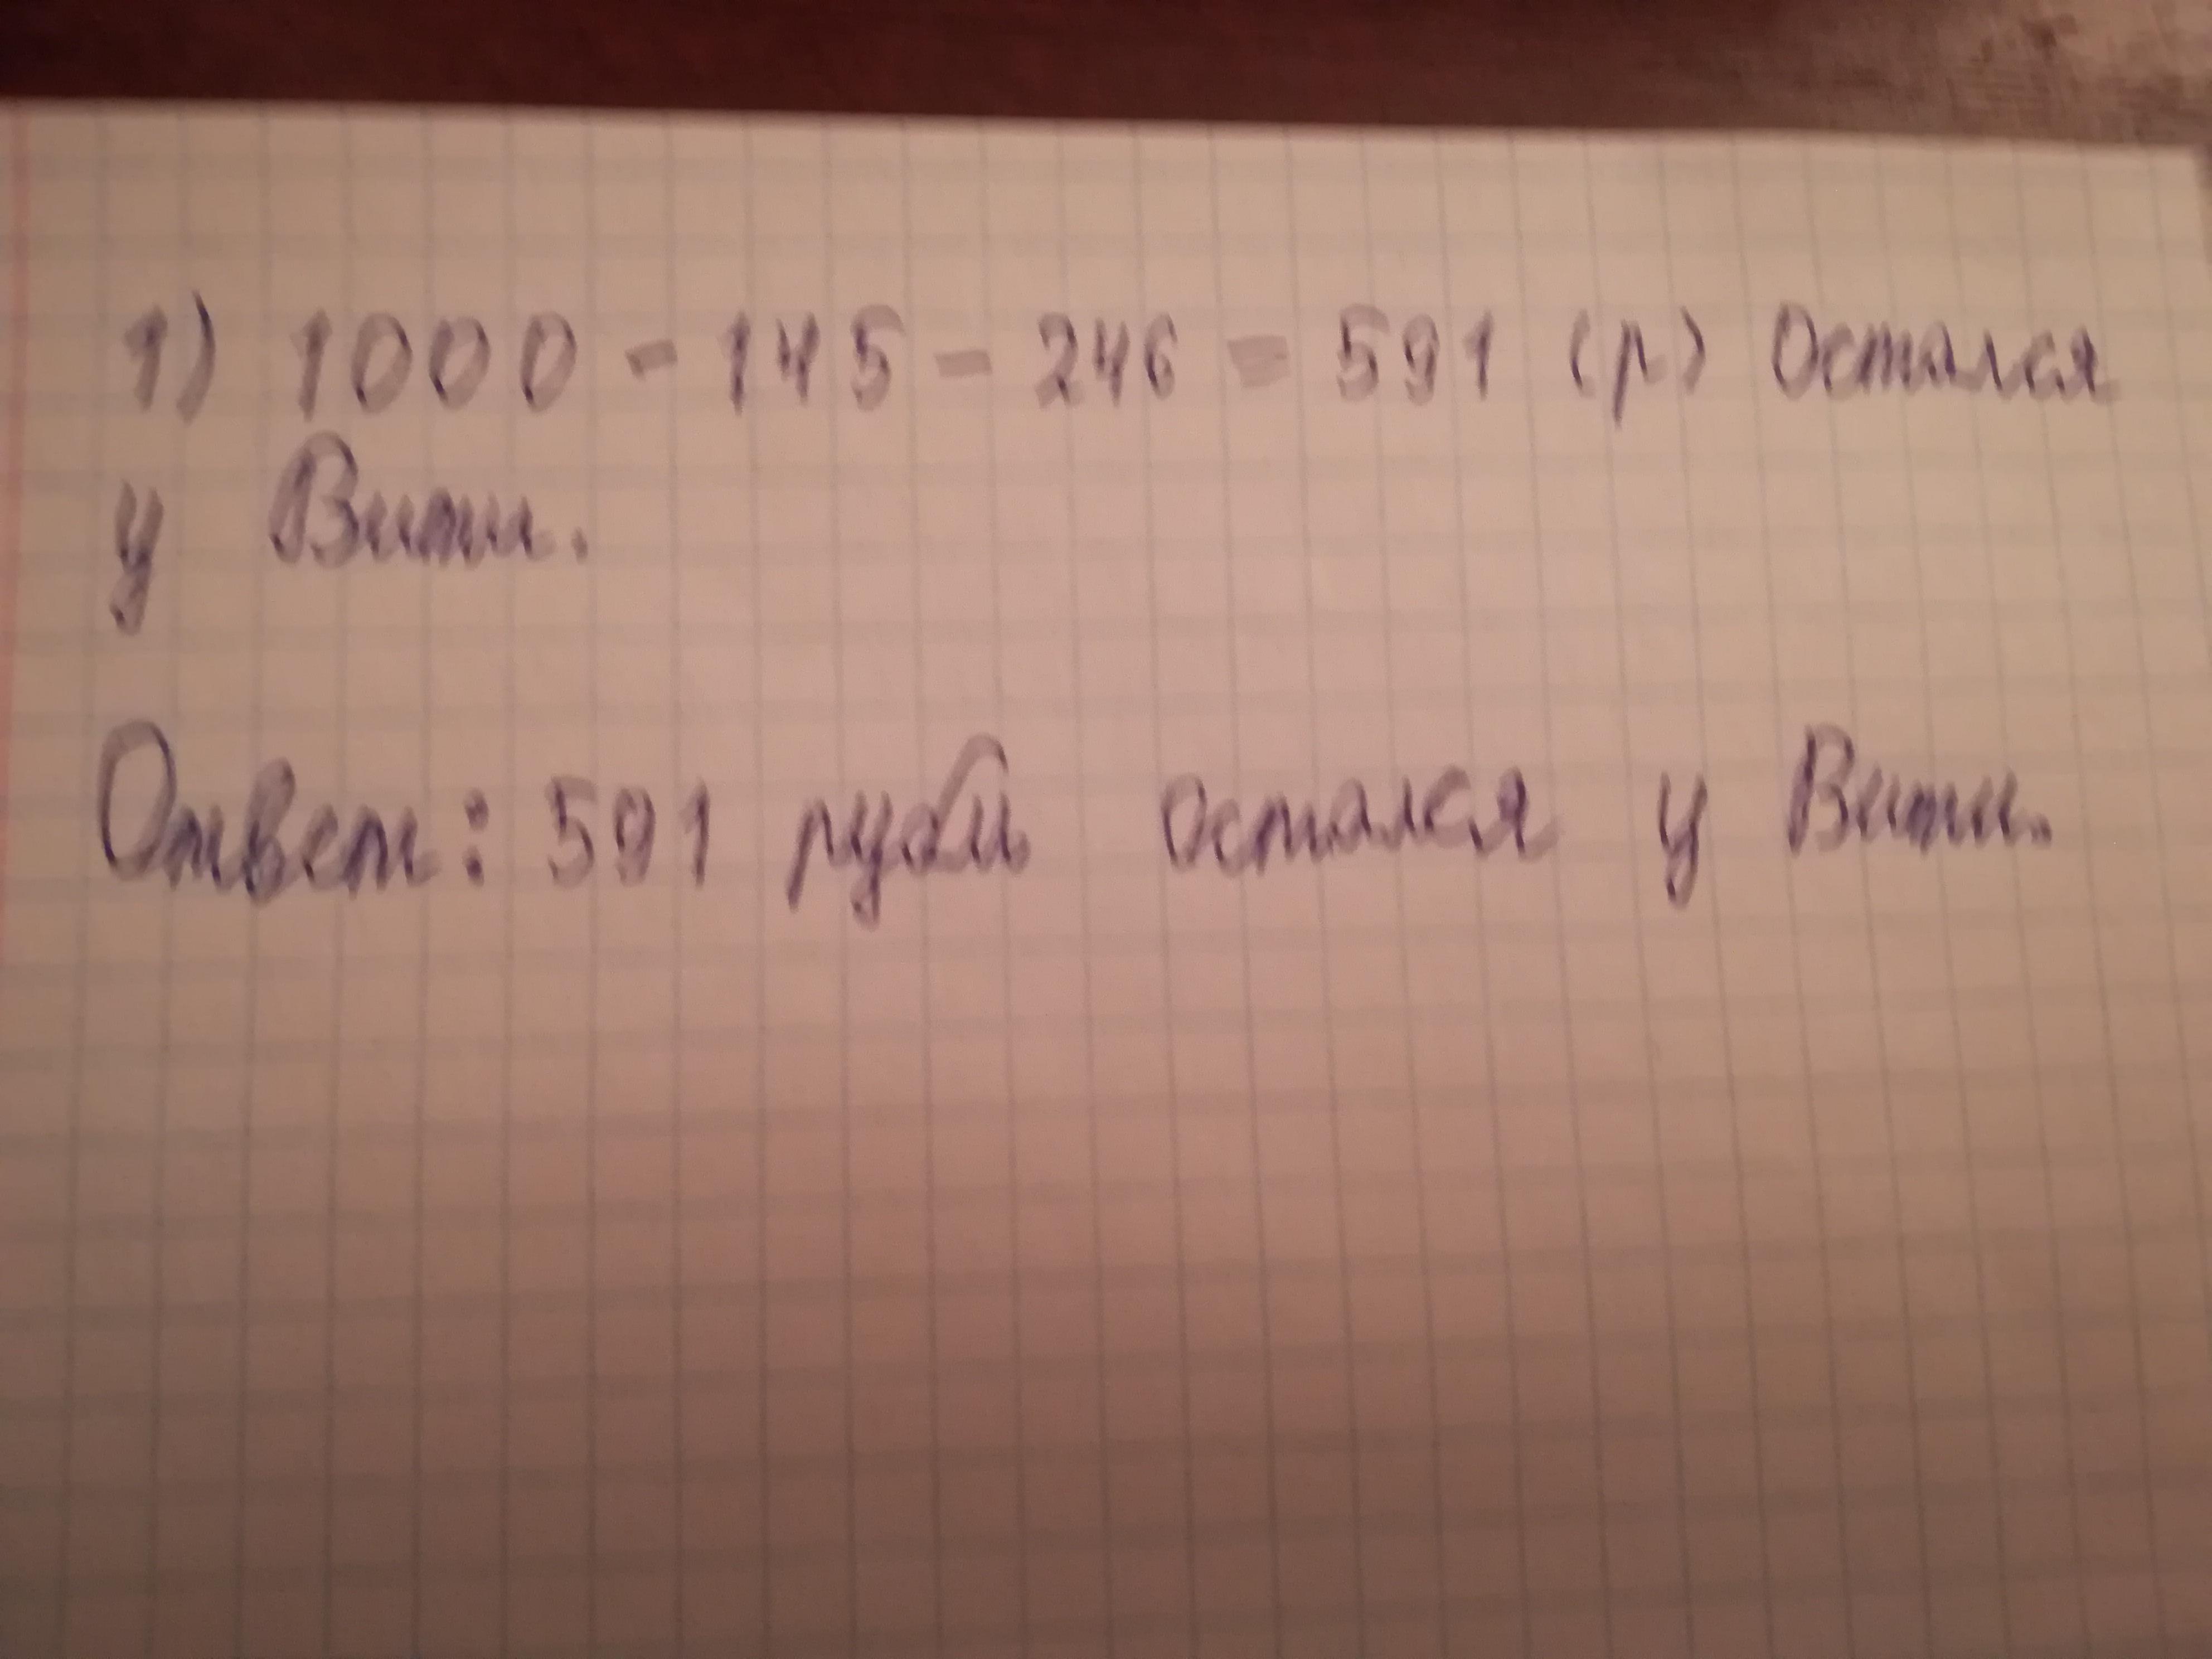 1) 1000 - 145 - 246 = 591 (р) остался
у Вити.
Ответ: 591 рубль остался у Вити.